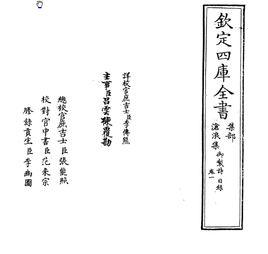 欽定四庫全書
集部
滄浪集
御製詩目錄
卷一
詳校官庶吉士臣李傳熊
主事臣呂雲棟覆勘
總校官庶吉士臣張能照
校對官中書臣范來宗
謄錄貢生臣李幽圖